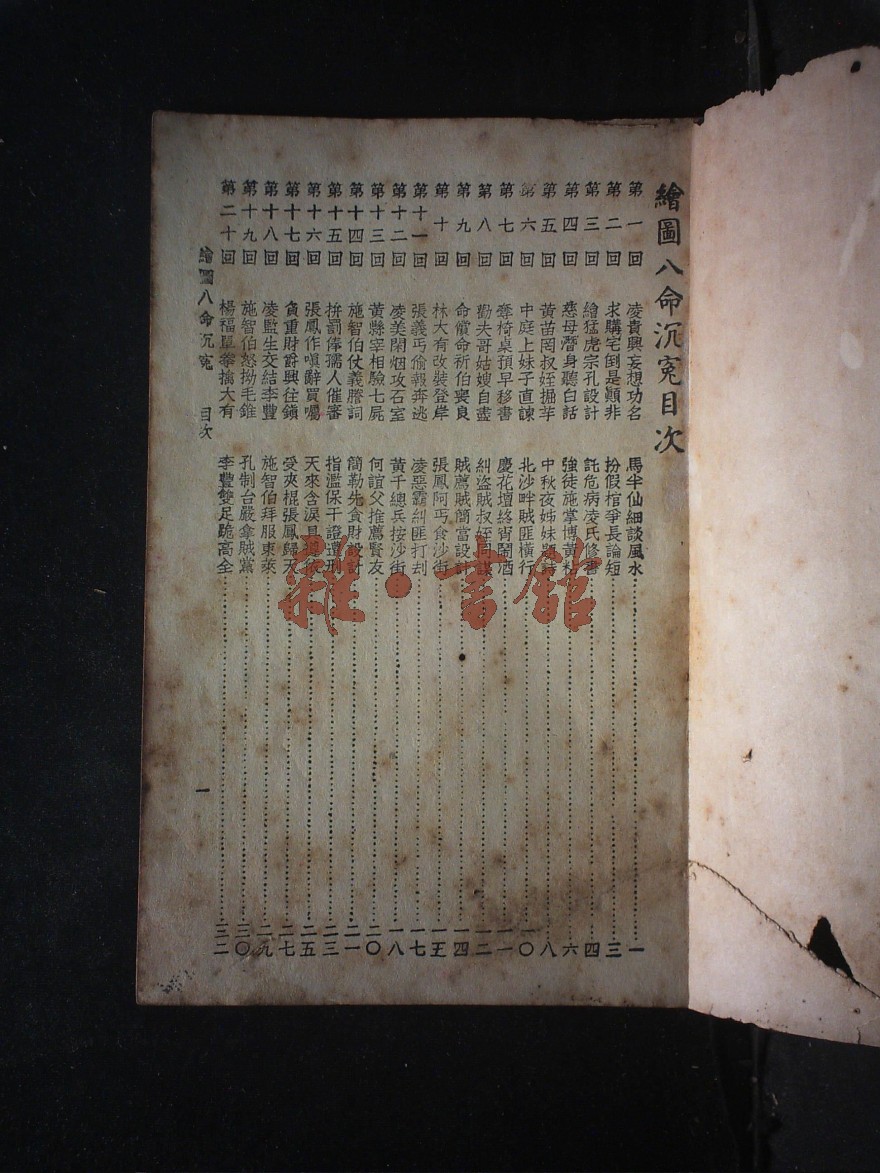 繪圖八命沉冤目次
第一回 凌貴興妄想功名 馬半仙細談風水 一
第二回 求購宅倒是顚非 扮假棺爭長論短 三
第三回 繪猛虎宗孔設計 託危病凌氏修書 四
第四回 慈母瞽身聽白話 強徒施掌博黃 六
第五回 黃苗罔叔姪掘芋 中秋夜姊妹 八
第六回 中庭上妹子直諫 北沙畔賊匪橫行 一〇
第七回 奪椅桌預早移書 慶花壇終宵鬧酒 一一
第八回 勸夫哥姑嫂自盡 糾盜賊叔姪同謀 一二
第九回 命償命祈伯喪良 賊薦賊簡當設計 一四
第十回 林大有改裝登岸 張鳳阿丐食沙街 一五
第十一回 張義丐偷報奔逃 凌惡霸糾匪打刦 一七
第十二回 凌美閑烟攻石室 黃千總兵按沙街 一八
第十三回 黃縣宰相驗七屍 何誼父推薦賢友 二〇
第十四回 施智伯仗義謄詞 簡勒先貪財設計 二一
第十五回 拚罰俸孺人催審 指濫保干證遭刑 二三
第十六回 張鳳作嗔辭買囑 天來含淚具 二五
第十七回 負重財爵興往鎭 受夾棍張鳳歸天 二七
第十八回 凌監生交結李豐 施智伯拜服東萊 二九
第十九回 施智伯怒拗毛錐 孔制台嚴拿賊黨 三〇
第二十回 楊福單拳擒大有 李豐雙足跪高全 三二
繪圖八命沉冤 目次 一
雜·書館